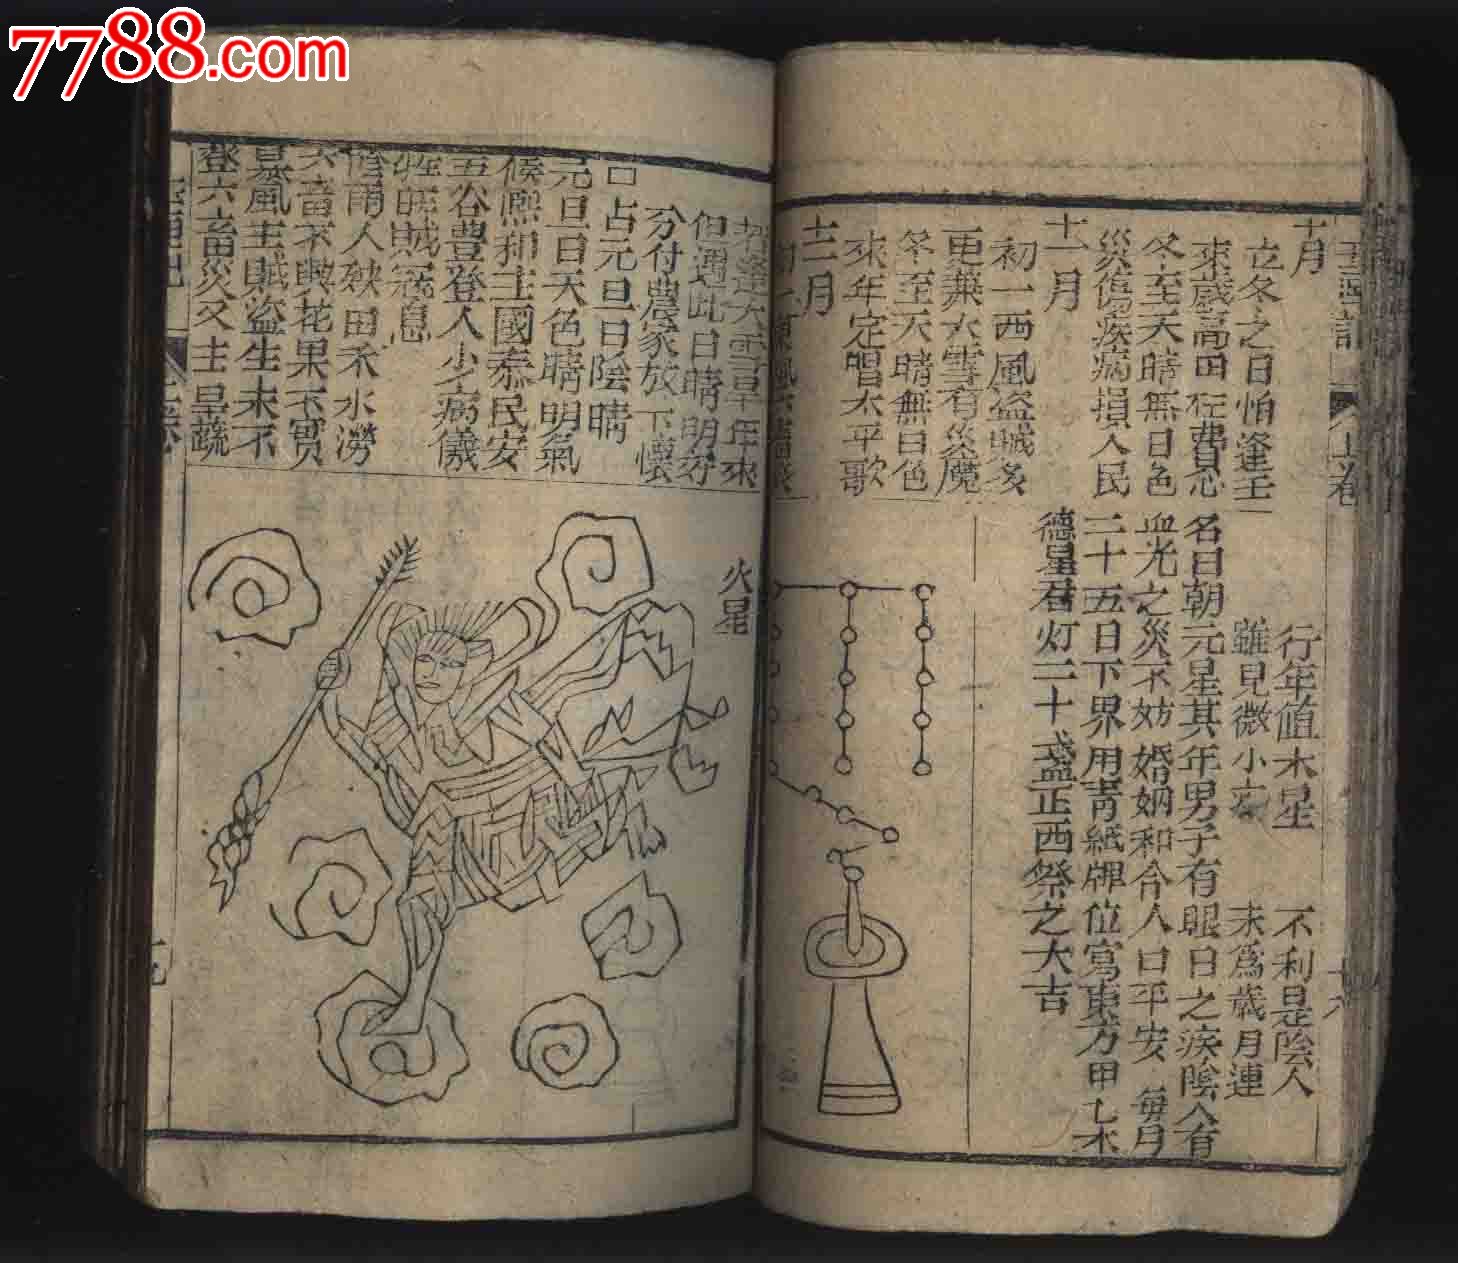 7788.com
玉匣記
上卷
十月
立冬之日怕逢壬
來歲高田枉費心
冬至天晴無日色
災傷疾病損人民
十一月
初一西風盜賊多
更兼大雪有災魔
冬至天晴無日色
來年定唱太平歌
十二月
初一東風六畜災
大雪旱年來
但遇此日晴明好
分付農家放下懷
占元旦日陰晴
元旦日天色晴明氣
候熙和主國泰民安
五谷豊登人少病儀
旺時賊寇息
陰雨人殃田禾水澇
六畜不興花果不實
暴風主賊盜生禾不
登六畜災又主旱蔬
行年值木星 不利是陰人
雖見微小 末為歲月連
名曰朝元星其年男子有眼日之疾陰人有
血光之災不妨婚姻和合人口平安每月
二十五日下界用青紙牌位寫東方甲乙木
德星君灯二十盞正西祭之大吉
火星